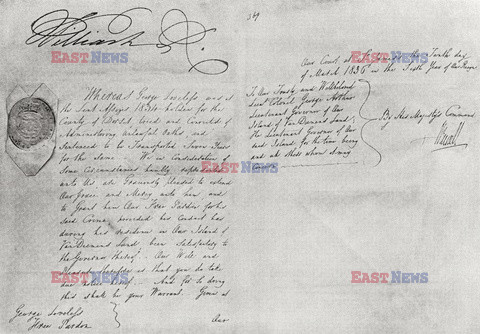 William R.
Whereas George Loveless was at
the Lent Assizes 1834 holden for the
County of Dorset tried and Convicted of
Administering unlawful Oaths and
Sentenced to be Transported Seven Years
for the Same. We in Consideration of
Some Circumstances humbly represented
unto Us are Graciously pleased to extend
Our Grace and Mercy unto him and
to Grant him Our Free Pardon for his
said Crime, provided his Conduct has
during his residence in Our Island of
Van Diemens Land been Satisfactory to
the Governor thereof. Our Will and
Pleasure therefore is that you do take
due notice And for so doing
this shall be your Warrant. Given at
George Loveless
Free Pardon
Our
369
Our Court at the Tenth day
of March 1836 in the Sixth Year of Our Reign
To Our Trusty and Welbeloved
Lieut Colonel George Arthur
Lieutenant Governor of Our
Island of Van Diemens Land
the Lieutenant Governor of Our
said Island for the time being
and all others whom it may
concern
By His Majestys Command
EASTNEWS
EASTNEWS
EASTNEWS
EASTNEWS
EASTNEWS